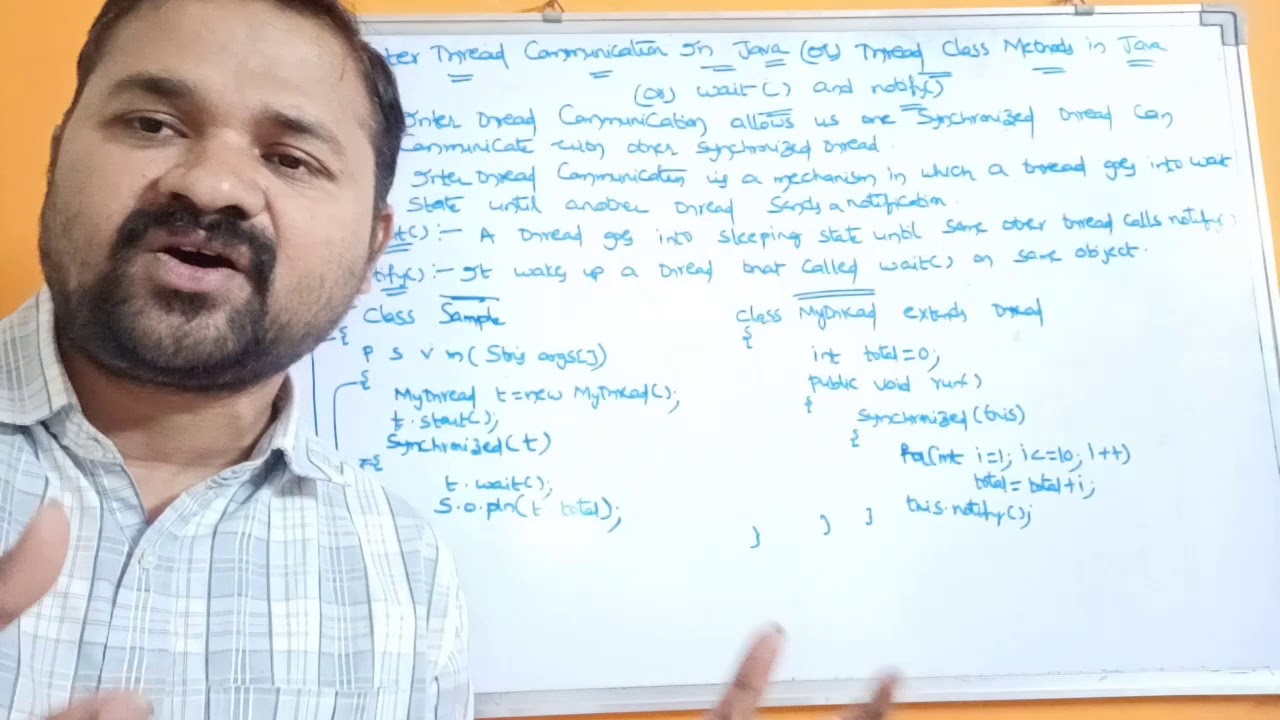 ter Thread Communication In Java (or) Thread Class Methods in Java
(or) wait() and notify()
Inter Thread Communication allows us one Synchronized thread can
Communicate with other Synchronized thread.
Inter Thread Communication is a mechanism in which a thread goes into wait
State until another thread Sends a notification.
it():- A thread goes into sleeping state until some other thread calls notify()
tify():- It wakes up a thread that called wait() on same object.
Class Sample
{
P S V m( String args[])
{
MyThread t=new MyThread();
t.start();
Synchronized(t)
{
t.wait();
S.o.pln(t.total);
class MyThread extends Thread
{
int total=0;
public void run()
{
Synchronized(this)
{
for(int i=1; i<=10; i++)
total=total+i;
this.notify();
} } }